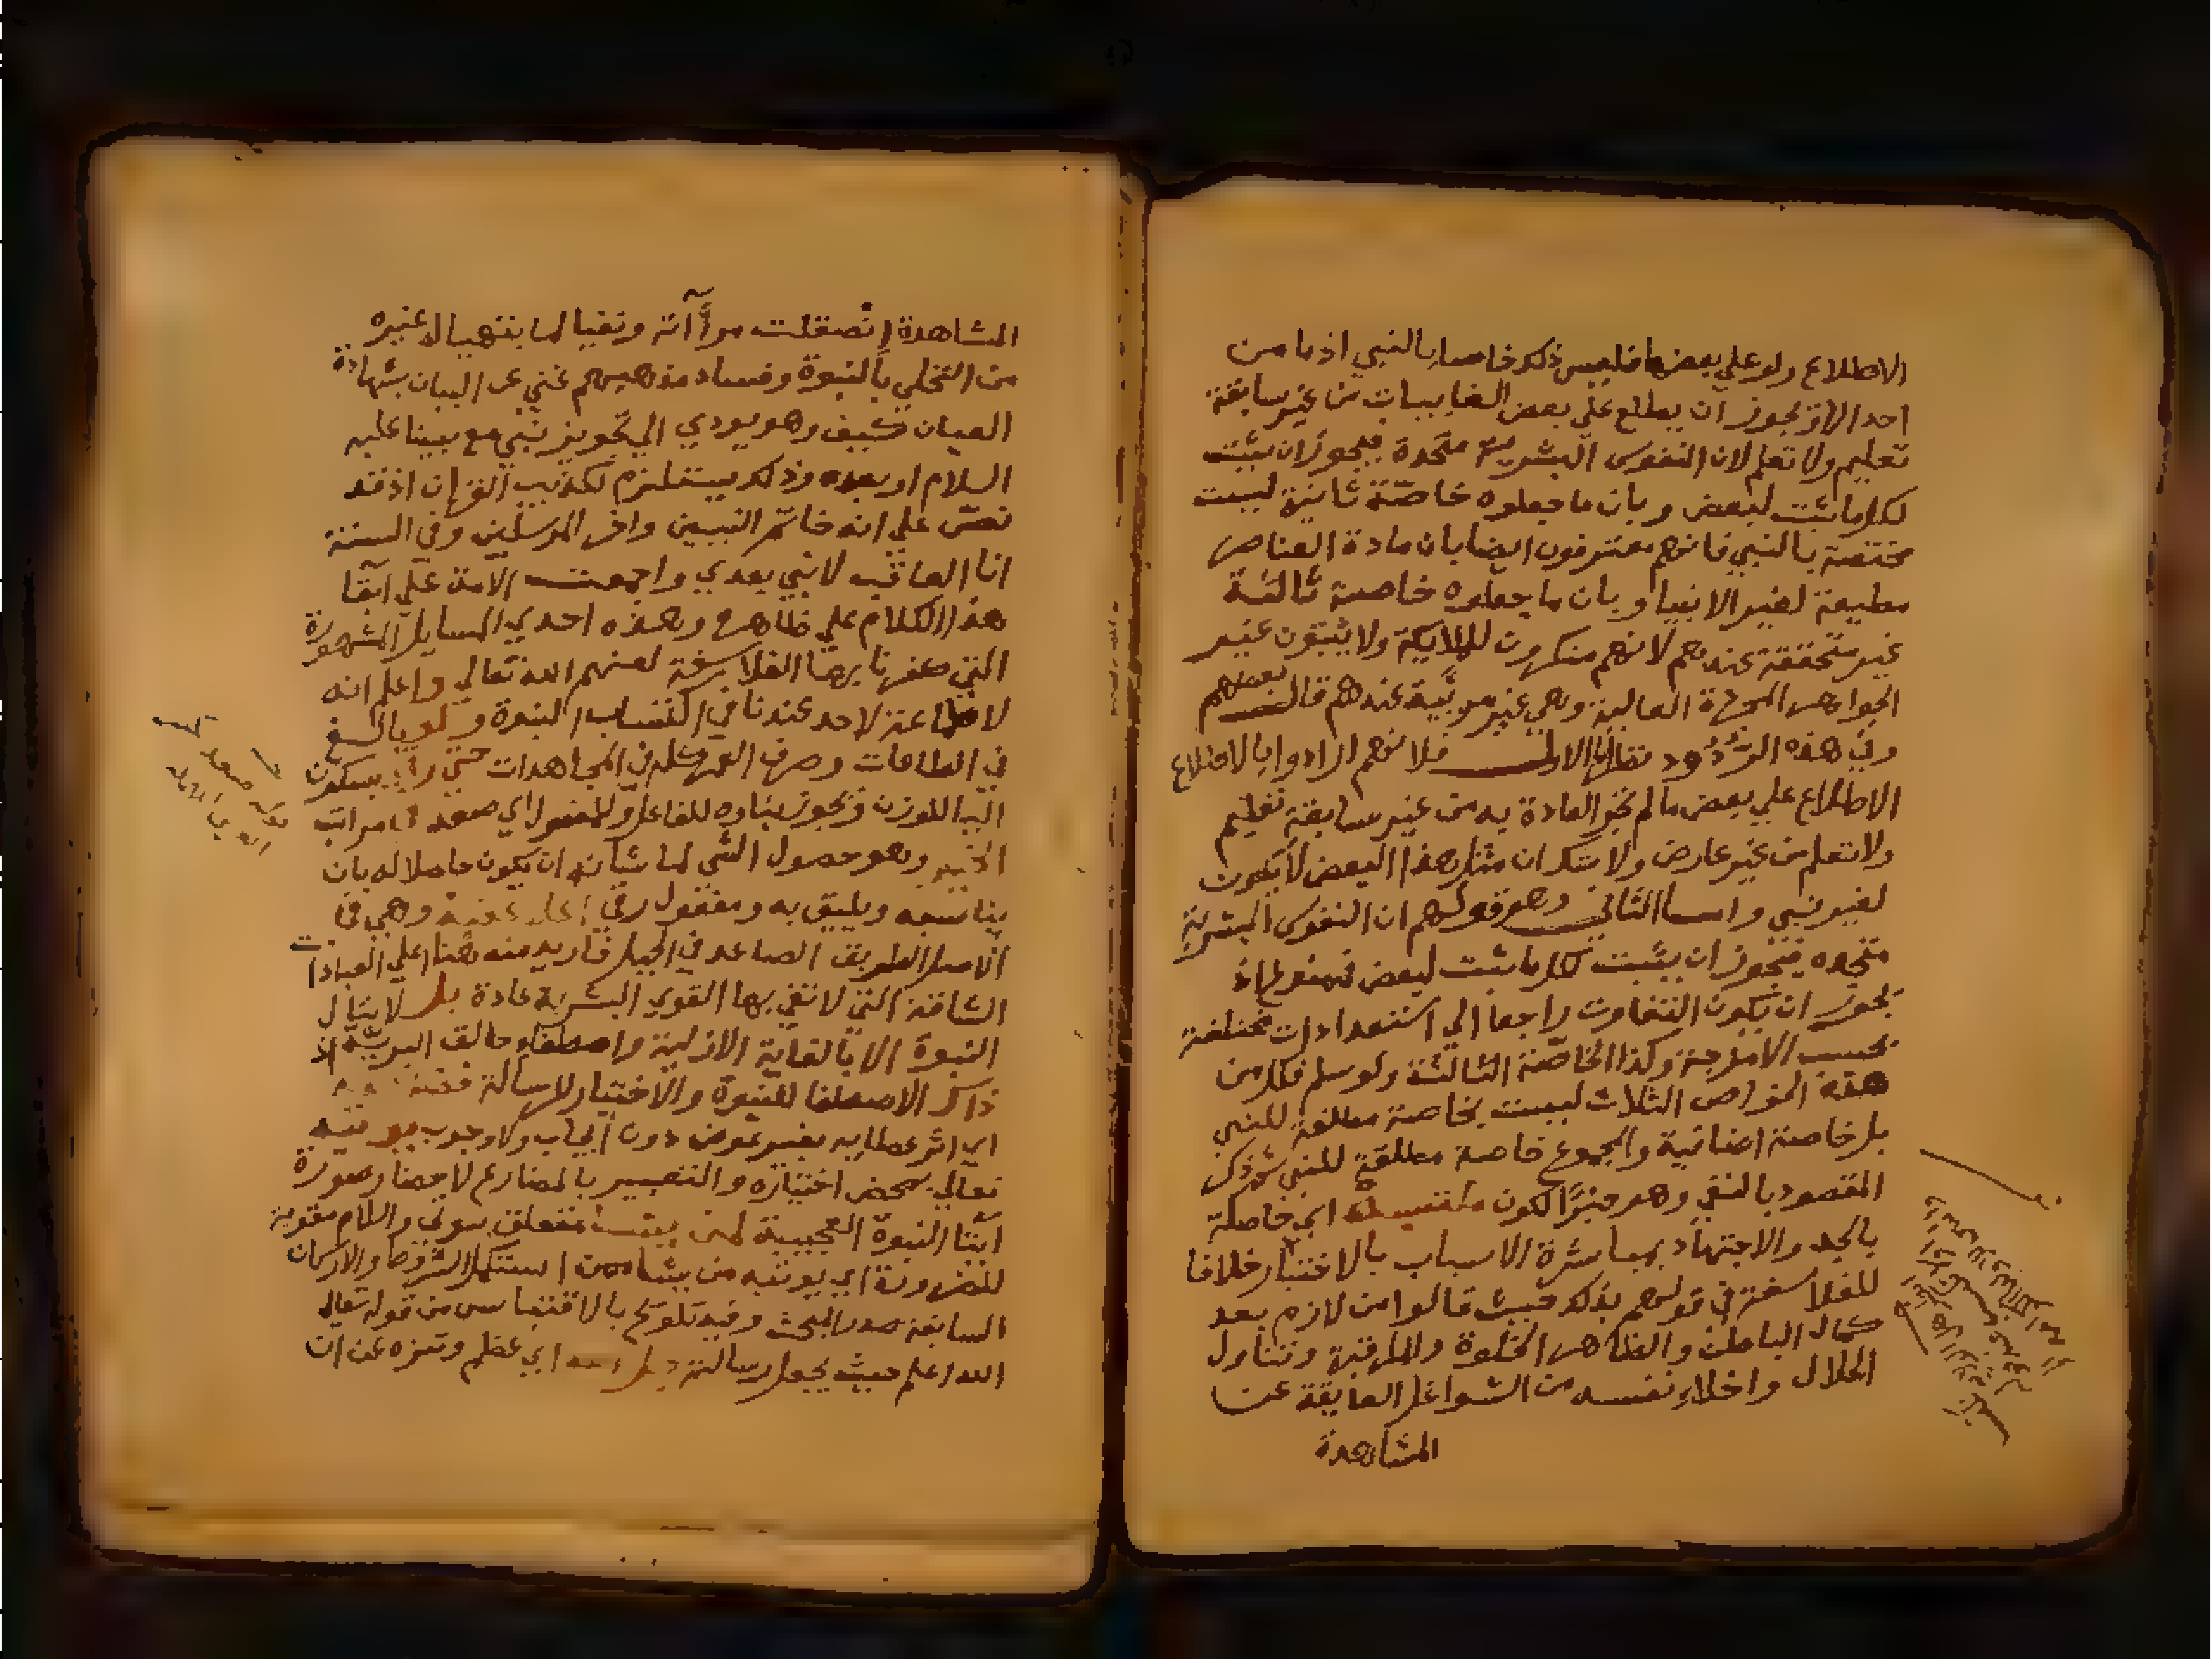 الاطلاع ولو علي بعضها فليس ذلك خاصا بالنبي اذ ما من
احد الا و يجوز ان يطلع علي بعض الغايبات من غير سابقة
تعليم ولا تعلم لان النفوس البشرية متحدة فيجوز ان يثبت
لكل ما ثبت لبعض وبان ما جعلوه خاصة ثانية ليست
مختصة بالنبي فانهم معترفون ايضا بان مادة العناصر
مطيعة لغير الانبيا وبان ما جعلوه خاصة ثالثة
غير متحققة عندهم لانهم منكرون للملايكة ولا يثبتون غير
الجواهر المجردة العالية وهي غير مرئية عندهم قال بعضهم
وفي هذه الردود نظر اما الاول فلانهم ارادوا بالاطلاع
الاطلاع علي بعض ما لم تجر العادة به من غير سابقة تعليم
ولا تعلم من غير عارض ولا شك ان مثل هذا البعض لا يكون
لغير نبي واما الثاني وهو قولهم ان النفوس البشرية
متحده فيجوز ان يثبت لكل ما ثبت لبعض فممنوع اذ
يجوز ان يكون التفاوت راجعا الي استعدادات مختلفة
بحسب الامزجة وكذا الخاصة الثالثة ولو سلم فكل من
هذه الخواص الثلاث ليست بخاصة مطلقة للنبي
بل خاصة اضافية والمجموع خاصة مطلقة للنبي ثم ذكر
المقصود بالنفي وهو خبر الكون مكتسبة اي حاصلة
بالجد والاجتهاد بمباشرة الاسباب بالاختيار خلافا
للفلاسفة في قولهم بذلك حيث قالوا من لازم بعد
كمال الباطن والظاهر الخلوة والمراقبة وتناول
الحلال واخلاء نفسه من الشواغل العايقة عن
المشاهدة
المشاهدة انصقلت مرآته وتهيا لما يتهيا له غيره
من التحلي بالنبوة وفساد مذهبهم غني عن البيان بشهادة
العيان كيف وهو يودي الي تجويز نبي مع نبينا عليه
السلام او بعده وذلك يستلزم تكذيب القران اذ قد
نص علي انه خاتم النبيين واخر المرسلين وفي السنة
انا العاقب لا نبي بعدي واجمعت الامة علي ابقا
هذا الكلام علي ظاهره وهذه احدي المسايل المشهورة
التي كفرنا بها الفلاسفة لعنهم الله تعالي واعلم انه
لا طماعة لاحد عندنا في اكتساب النبوة ولو بالغ
في الطاعات وصرف العمر كله في المجاهدات حتي رقي بسكون
اليا للوزن ويجوز بناوه للفاعل وللمفعول اي صعد في مراتب
الخير وهو حصول الشي لما شانه ان يكون حاصلا له بان
يناسبه ويليق به ومفعول رقي اعلا عقبة وهي في
الاصل الطريق الصاعد في الجبل فاريد منه هنا اعلي العبادات
الشاقة التي لا تفي بها القوي البشرية عادة بل لا ينال
النبوة الا بالعناية الازلية واصطفاء خالق البرية اذ
ذاك الاصطفا للنبوة والاختيار للرسالة فضل
اي اثر عطايه بغير عوض دون ايجاب ولا وجوب يوتيه
تعالي بمحض اختياره والتعبير بالمضارع لاحضار صورة
ايتا النبوة العجيبة لمن يشا متعلق بيوتي واللام مقوية
للضرورة اي يوتيه من يشا ممن استكمل الشروط والاركان
السابقة صدر المبحث وفيه تلويح بالاقتباس من قوله تعالي
الله اعلم حيث يجعل رسالته جل الله اي عظم وتنزه عن ان